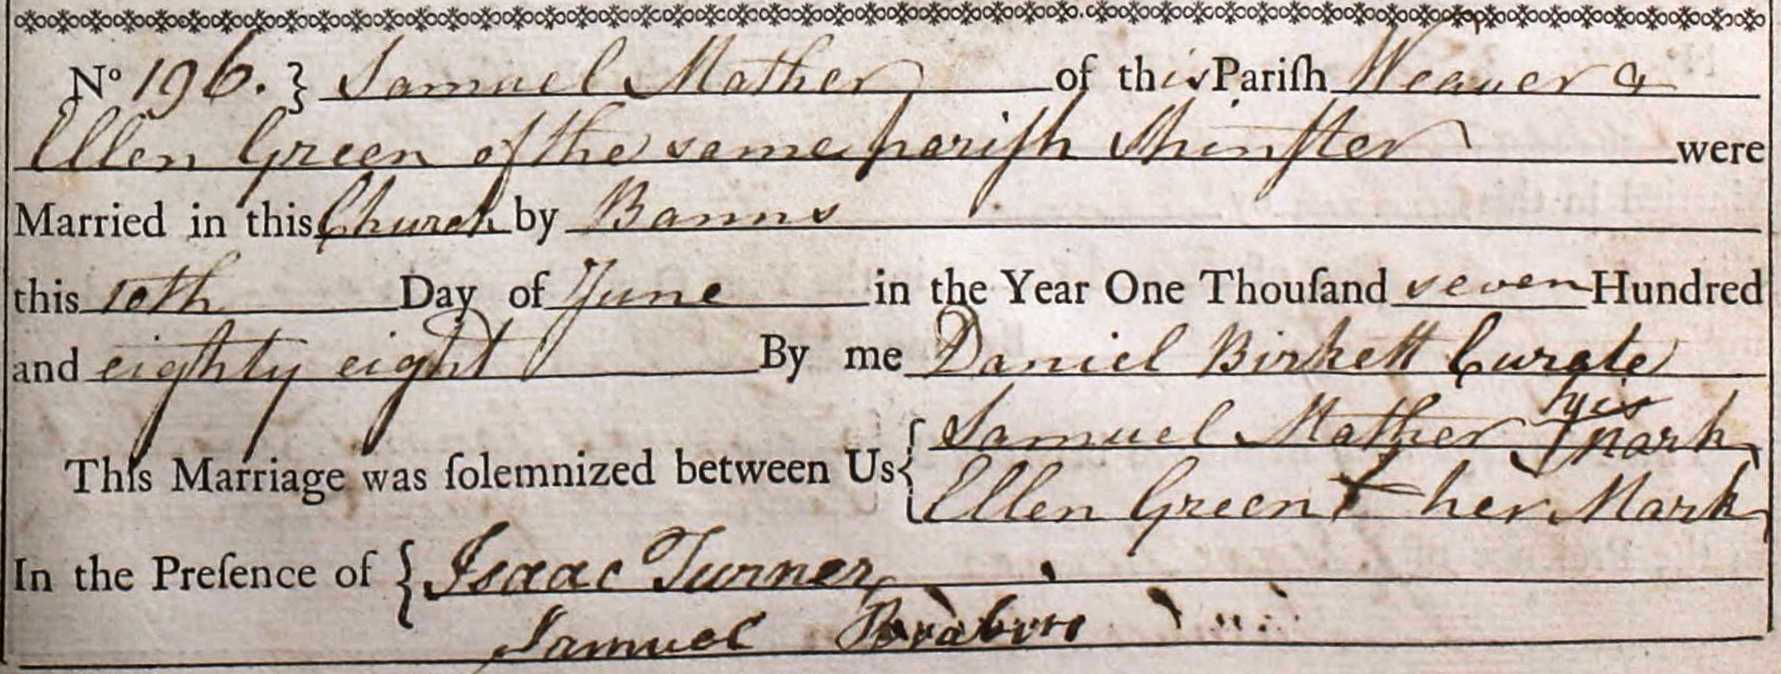 No 196. } Samuel Mather of this Pariſh Weaver &
Ellen Green of the same pariſh Spinſter were
Married in this Church by Banns
this 10th Day of June in the Year One Thouſand seven Hundred
and eighty eight By me Daniel Birkett Curate
his
This Marriage was ſolemnized between Us { Samuel Mather + mark
Ellen Green + her Mark
In the Preſence of { Isaac Turner
Samuel